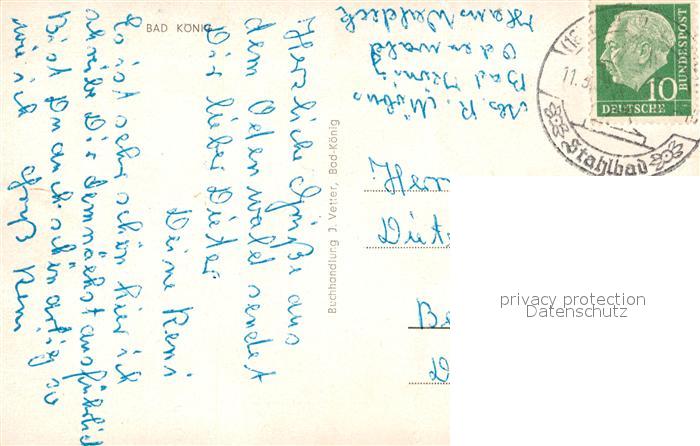 BAD KÖNIG
Herzliche Grüße aus
dem Odenwald sendet
Dir lieber Dieter
Deine Reni
Es ist sehr schön hier ich
schreibe Dir demnächst ausführlich
Bist Du auch schön artig so
wie ich Gruß Reni
Buchhandlung J. Vetter, Bad-König
Abs. R. Möbus
Bad König
Odenwald
Haus Waldeck
Herrn
Diet
Be
D
10
DEUTSCHE
BUNDESPOST
11.
Stahlbad
privacy protection
Datenschutz